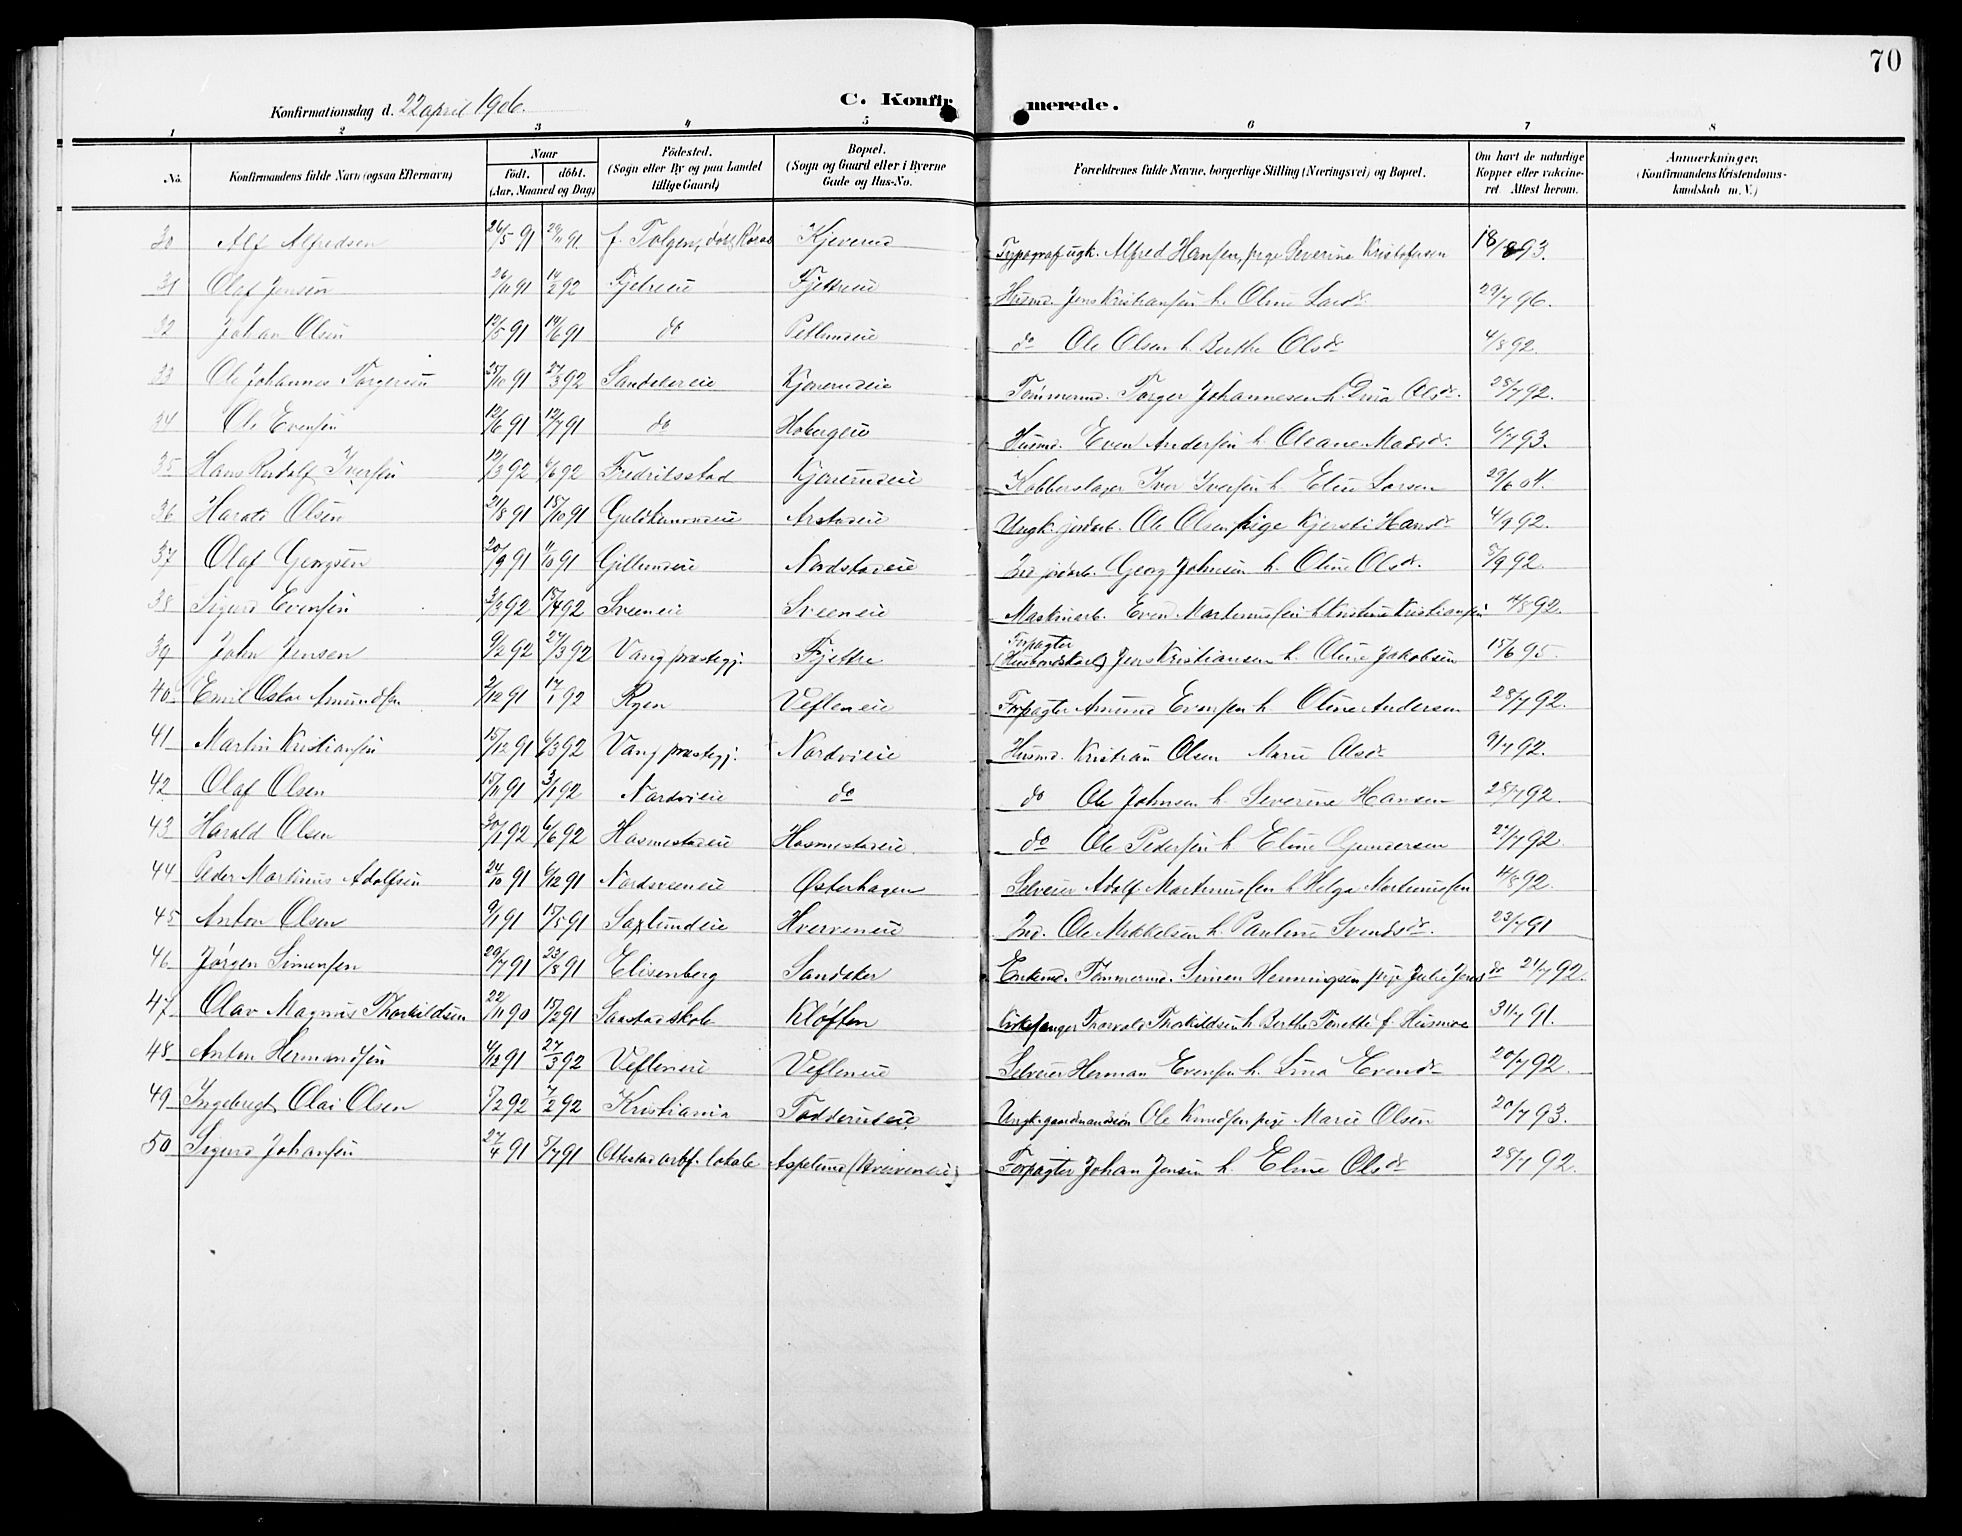 70
Konfirmationsdag d. 22 april 1906.
C. Konfirmerede.
1 2 3 4 5 6 7 8
No. Konfirmandens fulde Navn (ogsaa Efternavn)
Naar født. døbt. (Aar, Maaned og Dag)
Fødested. (Sogn eller By og paa Landet tillige Gaard)
Bopæl. (Sogn og Gaard eller i Byerne Gade og Hus-No.
Forældrenes fulde Navne, borgerlige Stilling (Næringsvei) og Bopæl.
Om havt de naturlige Kopper eller vaksineret Attest herom.
Anmerkninger. (Konfirmandens Kristendomskundskab m. V.)
30 Alf Alfredsen 26/5 91 29/11 91. f. Tolgen, Kjeverud Typograf ugk. Alfred Hansen, pige Severine Kristofersen 18/8 93.
31 Olaf Jensen 26/11 91 14/2 92 Fjetreeie Fjettreeie Husmd. Jens Kristiansen h. Oline Larsdr 29/7 96.
32 Johan Olsen 12/5 91 14/6 91 do do Ole Olsen h. Berthe Olsdr 4/8 92.
33 Ole Johannes Torgersen 25/10 91 27/3 92 Sandakereie Kjoverudeie Tømmermd. Torger Johannesen h. Dina Olsdr. 28/7 92.
34 Ole Evensen 12/6 91 12/7 91 do Hobergeie Husmd. Even Andersen h. Oleane Madsdr. 6/7 93.
35 Hans Rudolf Iversen 12/3 92 6/6 92 Fredriksstad Kjoverudeie Kobberslager Iver Iversen h. Eline Larsen 29/6 04.
36 Harald Olsen 21/8 91 18/10 91 Arstadeie Ungk. jordarb. Ole Olsen pige Kjersti Hansdr 4/9 92.
37 Olaf Georgsen 20/9 91 11/10 91 Gillundeie Nordstadeie Ind jordarb. Georg Johnsen h. Oline Olsdr. 5/9 92.
38 Sigurd Evensen 3/3 92 17/4 92 Sveeneie Sveeneie Maskinarb. Even Martinussen h. Kristine Kristiansen 11/8 92.
39 John Jensen 9/2 92 27/3 92 Vang præstegj. Fjettre Forpagter (Husbondskarl) Jens Kristiansen h. Oline Jakobsen 15/6 95.
40 Emil Oskar Amundsen 2/12 91 17/1 92 Ryen Vefleneie Forpagter Amund Evensen h. Oline Andersen 28/7 92.
41 Martin Kristiansen 15/12 91 6/3 92 Vang præstegj. Nordvieie Husmd. Kristian Olsen Marie Olsdr 9/7 92.
42 Olaf Olsen 15/11 91 3/1 92 Nordvieie do do Ole Johnsen h. Severine Hansen 28/7 92.
43 Harald Olsen 30/1 92 6/6 92 Hosmestadeie Hosmestadeie. do Ole Pedersen h. Eline Gundersen 27/7 92.
44 Peder Martinius Adolfsen 24/10 91 6/12 91 Nordsveeneie Østerhagen Selveier Adolf Martinussen h. Helga Martinussen 11/8 92.
45 Anton Olsen 9/1 91 17/5 91 Saxlundeie Hverveneie Ind. Ole Mikkelsen h. Pauline Svendsdr. 23/7 91
46 Jørgen Simensen 29/7 91 23/8 91 Elisenberg Sandaker Enkemd. Tømmermd. Simen Henningsen pige Julie Jensdr 21/7 92.
47 Olav Magnus Thorkildsen 22/11 90 15/2 91 Saastad skole Kløften Kirkesanger Thorvald Thorkildsen h. Berthe Tonette f. Husmoe 31/7 91.
48 Anton Hermansen 4/12 91 27/3 92 Vefleneie Vefleneie Selveier Herman Evensen h. Lina Evensdr 20/7 92.
49 Ingebregt Olai Olsen 5/2 92 7/2 92 Kristiania Todderudeie Ungk. gaardmandssøn Ole Knudsen pige Marie Olsen 20/7 93.
50 Sigurd Johansen 27/4 91 5/7 91 Ottestad arbf. lokale Aspelund (Hverveneie) Forpagter Johan Jensen h. Eline Olsdr 28/7 92.